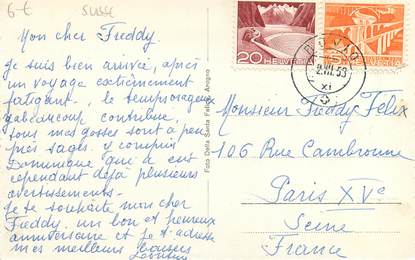 6-€ SUISSE
Mon cher Freddy.
Je suis bien arrivée, après
un voyage extrêmement
fatigant, le temps orageux
y a beaucoup contribué,
tous mes gosses sont à peu
près sages. y compris
Dominique qui a eut
cependant déjà plusieurs
avertissements.
Je te souhaite mon cher
Freddy, un bon et heureux
anniversaire et je t'adresse
mes meilleurs baisers
Foto Della Santa Arogno
20 HELVETIA
HELVETIA
2.VII.53
XI
Monsieur Freddy Felix
106 Rue Cambronne
Paris XVe
Seine
France